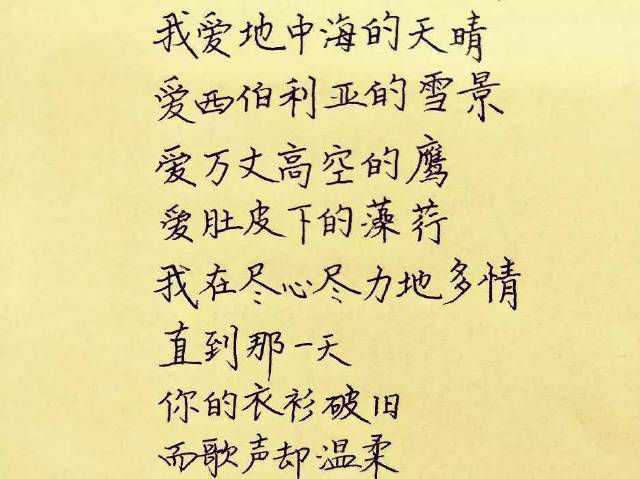 我爱地中海的天晴
爱西伯利亚的雪景
爱万丈高空的鹰
爱肚皮下的藻荇
我在尽心尽力地多情
直到那一天
你的衣衫破旧
而歌声却温柔